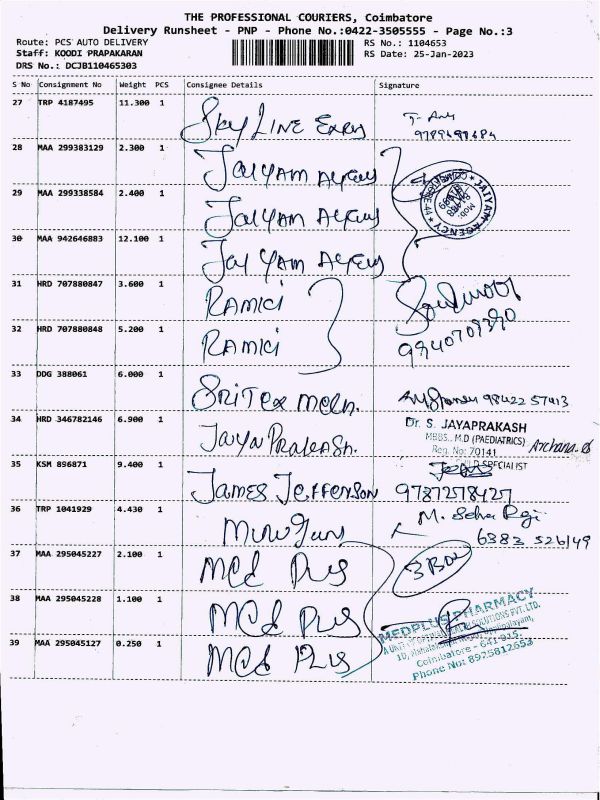 THE PROFESSIONAL COURIERS, Coimbatore
Delivery Runsheet - PNP - Phone No.:0422-3505555 - Page No.:3
Route: PCS AUTO DELIVERY
Staff: KOODI PRAPAKARAN
DRS No.: DCJB110465303
RS No.: 1104653
RS Date: 25-Jan-2023
S No Consignment No Weight PCS Consignee Details Signature
27 TRP 4187495 11.300 1 SKY LINE
28 MAA 299383129 2.300 1 JAIYAM
29 MAA 299338584 2.400 1 JAIYAM
JAIYAM AGENCY
30 MAA 942646883 12.100 1 JAIYAM
31 HRD 707880847 3.600 1 RAMICI
32 HRD 707880848 5.200 1 RAMICI
33 DDG 388061 6.000 1 SRITEX 98422 57413
34 HRD 346782146 6.900 1 JAYAPRAKASH.
Dr. S. JAYAPRAKASH
MBBS., M.D (PAEDIATRICS) Archana
Reg. No: 70141
CHILD SPECIALIST
35 KSM 896871 9.400 1 JAMES JEFFERSON 9787278427
36 TRP 1041929 4.430 1 Murugan
6383 526149
37 MAA 295045227 2.100 1 MED PLUS
38 MAA 295045228 1.100 1 MED PLUS
39 MAA 295045127 0.250 1 MED PLUS
MEDPLUS PHARMACY
Coimbatore - 641 015.
Phone No: 8925812653